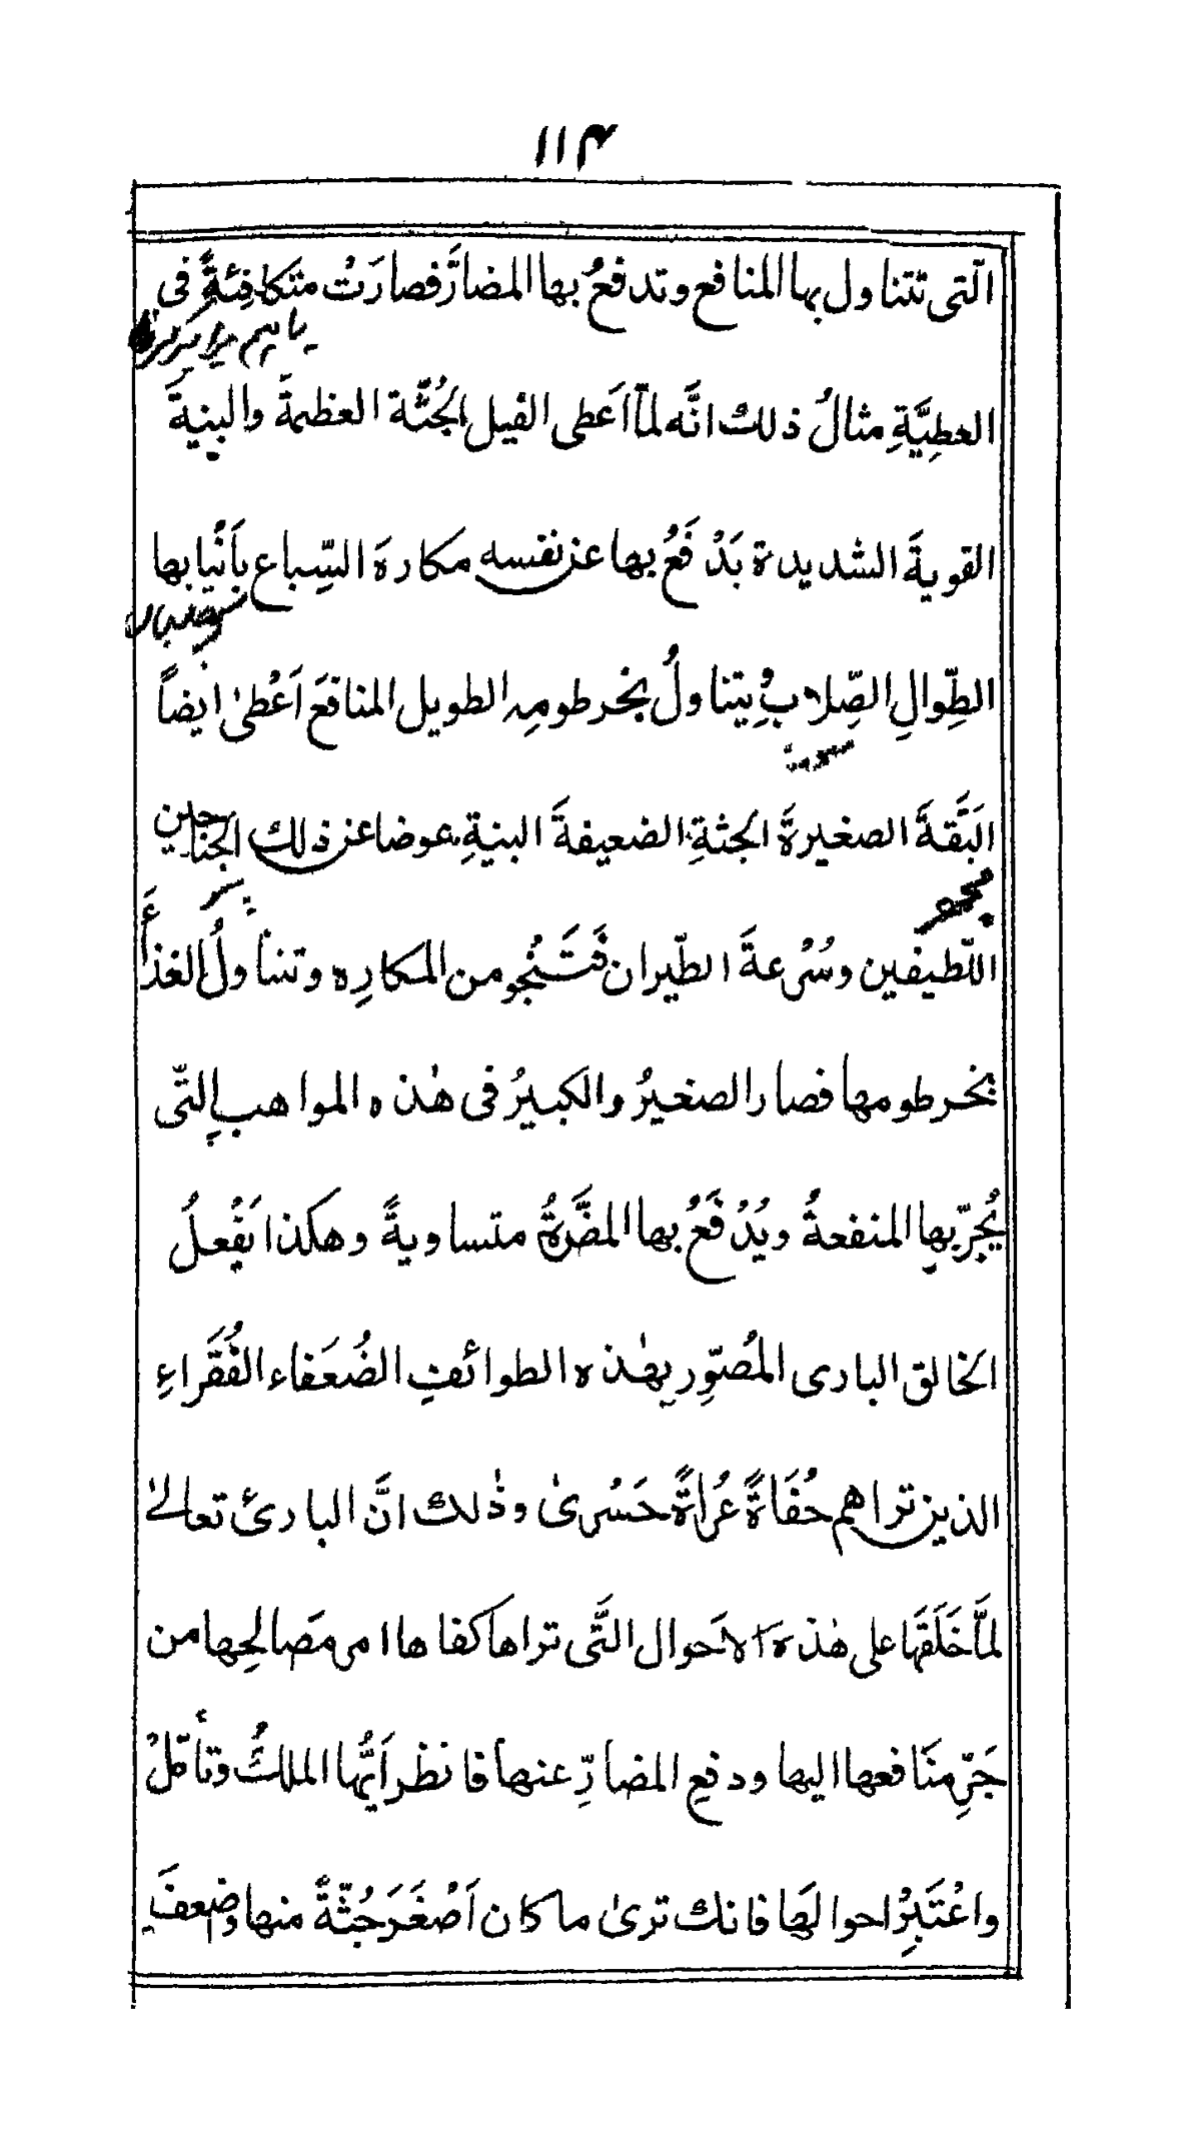 ۱۱۴
الّتى تتناول بها المنافع وتدفعُ بها المضارَّ فصارَتْ متكافِئةً فى
یا ہم برابر
العطِيَّةِ مثالُ ذلك انَّه لمّا اَعطى الفيل الجُثَّة العظمةَ والبنيةَ
القويةَ الشديدة بَدْفَعُ بها عن نفسه مكارهَ السِّباع بأَنْيابها
الطِّوالِ الصِّلابِ ويتناولُ بخرطومِه الطويل المنافعَ اَعْطىٰ ايضاً
البَقَّةَ الصغيرةَ الجثةِ الضعيفةَ البنيةِ عوضا عن ذلك الجناحين
مچھر
اللّطيفين وسُرْعةَ الطّيران فَتَنْجُو من المكارِه وتتناولُ الغذاءَ
بخرطومها فصار الصغيرُ والكبيرُ فى هٰذه المواهب الّتى
يُجرّ بها المنفعةُ ويُدْفَعُ بها المضَّرةُ متساويةً وهكذا يَفْعلُ
الخالق البارى المُصوِّر بهٰذه الطوائف الضُعَفاء الفُقَراءِ
الذين تراهم حُفَاةً عُراةً حَسْرىٰ وذٰلك انَّ البارئ تعالىٰ
لمَّا خَلَقَها على هٰذه الاَحوال الَّتى تراها كفاها امر مَصالِحِها من
جَرِّ منَافعها اليها ودفعِ المضارِّ عنها فانظر اَيُّها الملكُ وتأمّلْ
واعْتَبِرْ احوالَها فانك ترىٰ ما كان اَصْغَرَ جُثّةً منها واضعفَ